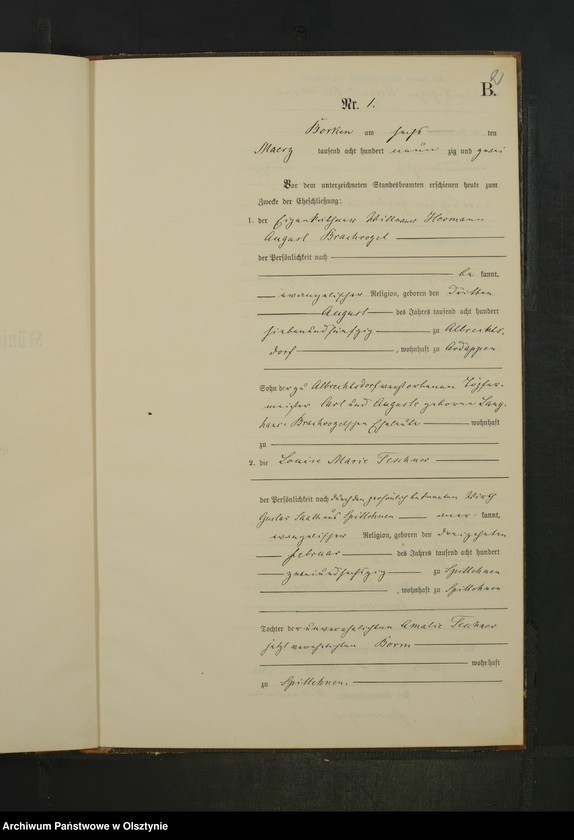 B.
Nr. 1.
Borken am sechs ten
Maerz tausend acht hundert neun zig und zwei
Vor dem unterzeichneten Standesbeamten erschienen heute zum
Zwecke der Eheschließung:
1. der Eigenkäthner Hermann
August Brachvogel
der Persönlichkeit nach
be kannt,
evangelischer Religion, geboren den dritten
August des Jahres tausend acht hundert
siebenundfünfzig zu Albrechts-
dorf , wohnhaft zu Ardappen
Sohn der zu Albrechtsdorf verstorbenen Töpfer-
meister Carl und Auguste geborene Lang-
hans- Brachvogelschen Eheleute wohnhaft
zu
2. die Louise Marie Teschner
der Persönlichkeit nach durch den persönlich bekannten Wirth
Gustav aus Spittehnen aner kannt,
evangelischer Religion, geboren den dreizehnten
Februar des Jahres tausend acht hundert
zweiundsechszig zu Spittehnen
, wohnhaft zu Spittehnen
Tochter der unverehelichten Amalie Teschner
jetzt verehelichten Borm
wohnhaft
zu Spittehnen.
Archiwum Państwowe w Olsztynie